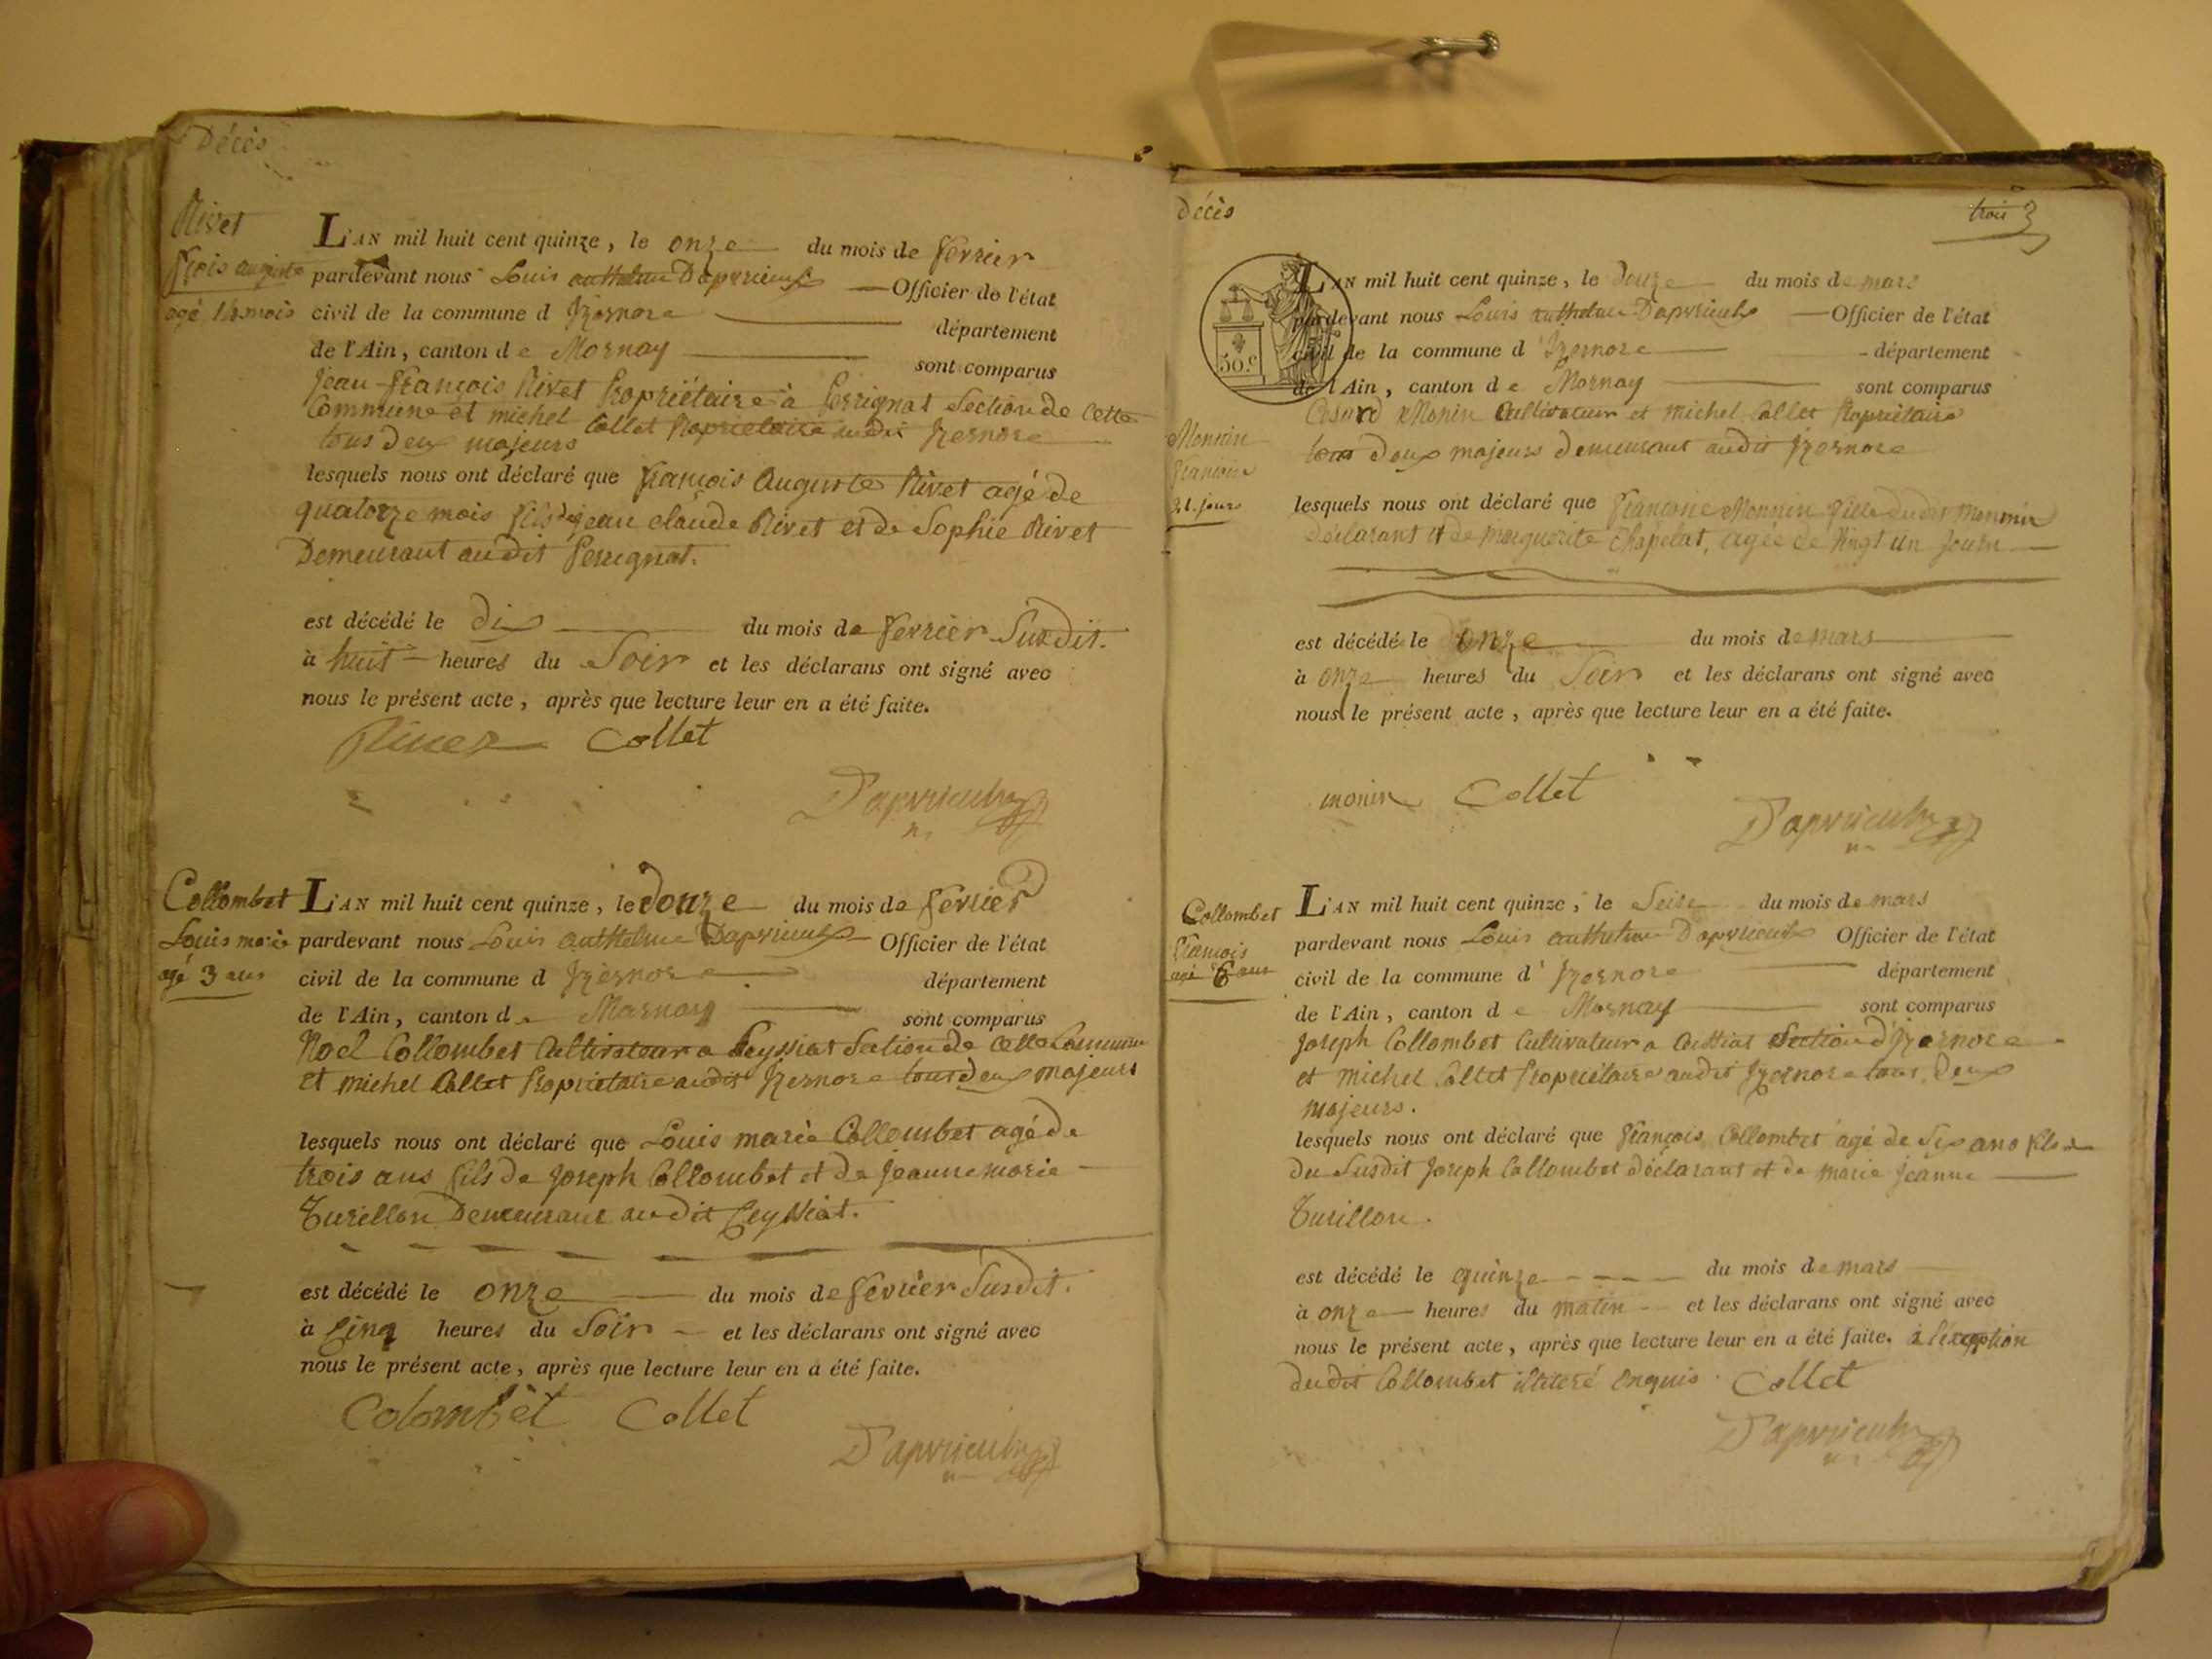 Décès
Rivet
frçois auguste
agé 14 mois
L'AN mil huit cent quinze, le onze du mois de fevrier
pardevant nous Louis anthelme Dapvrieulx Officier de l'état
civil de la commune d Izernore département
de l'Ain, canton de Mornay sont comparus
Jean-françois Rivet Propriétaire à Perrignat Section de cette
Commune et michel Collet Propriétaire audit Izernore
tous deux majeurs
lesquels nous ont déclaré que françois Auguste Rivet agé de
quatorze mois fils de jean claude Rivet et de Sophie Rivet
Demeurant audit Perrignat.
est décédé le dix du mois de fevrier Susdit.
à huit heures du Soir et les déclarans ont signé avec
nous le présent acte, après que lecture leur en a été faite.
Rivet Collet
Dapvrieulx
Collombet
Louis marie
agé 3 ans
L'AN mil huit cent quinze, le Douze du mois de fevrier
pardevant nous Louis anthelme Dapvrieulx Officier de l'état
civil de la commune d Izernore département
de l'Ain, canton de Mornay sont comparus
Noel Collombet Cultivateur a Ceyssiat Section de cette Commune
et michel Collet Propriétaire audit Izernore tous deux majeurs
lesquels nous ont déclaré que Louis marie Collombet agé de
trois ans fils de Joseph Collombet et de Jeanne marie
Turillon Demeurant audit Ceyssiat.
est décédé le onze du mois de fevrier Susdit.
à Cinq heures du Soir et les déclarans ont signé avec
nous le présent acte, après que lecture leur en a été faite.
Colombet Collet
Dapvrieulx
Décès
trois 3
50.c
Monnin
françoise
21. jours
L'AN mil huit cent quinze, le Douze du mois de mars
pardevant nous Louis anthelme Dapvrieulx Officier de l'état
civil de la commune d'Izernore département
de l'Ain, canton de Mornay sont comparus
Cesard Monin Cultivateur et michel Collet Propriétaire
tous deux majeurs demeurant audit Izernore
lesquels nous ont déclaré que françoise Monnin fille dudit Monnin
déclarant et de marguerite Chapelat, agée de vingt un jours
est décédé le onze du mois de mars
à onze heures du Soir et les déclarans ont signé avec
nous le présent acte, après que lecture leur en a été faite.
monin Collet
Dapvrieulx
Collombet
françois
agé 6 ans
L'AN mil huit cent quinze, le Seize du mois de mars
pardevant nous Louis anthelme Dapvrieulx Officier de l'état
civil de la commune d'Izernore département
de l'Ain, canton de Mornay sont comparus
Joseph Collombet Cultivateur a Ceissiat Section d'Izernore
et michel Collet Propriétaire audit Izernore tous deux
majeurs.
lesquels nous ont déclaré que françois Collombet agé de Six ans fils
du Susdit Joseph Collombet déclarant et de marie Jeanne
Turillon.
est décédé le quinze du mois de mars
à onze heures du matin et les déclarans ont signé avec
nous le présent acte, après que lecture leur en a été faite. à l'exception
dudit Collombet illitéré enquis. Collet
Dapvrieulx